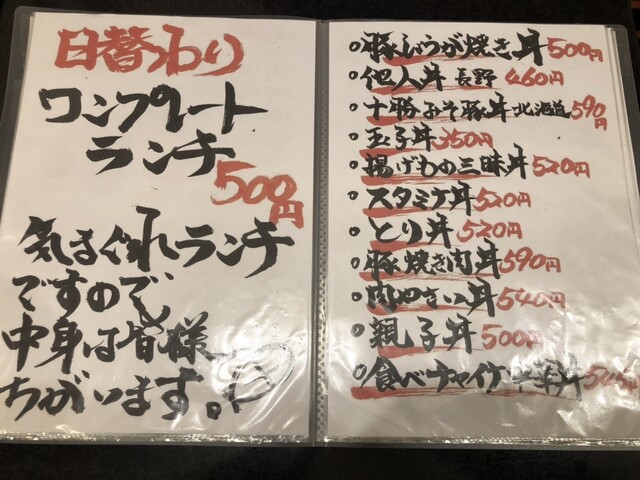 日替わり
ワンプレート
ランチ
500円
気まぐれランチ
ですので、
中身は皆様
ちがいます。
豚しょうが焼き丼 500円
他人丼 長野 460円
十勝みそ豚丼 北海道 590円
玉子丼 350円
揚げもの三昧丼 520円
スタミナ丼 520円
とり丼 520円
豚焼き肉丼 590円
肉やさい丼 540円
親子丼 500円
食べチャイナ 中華丼